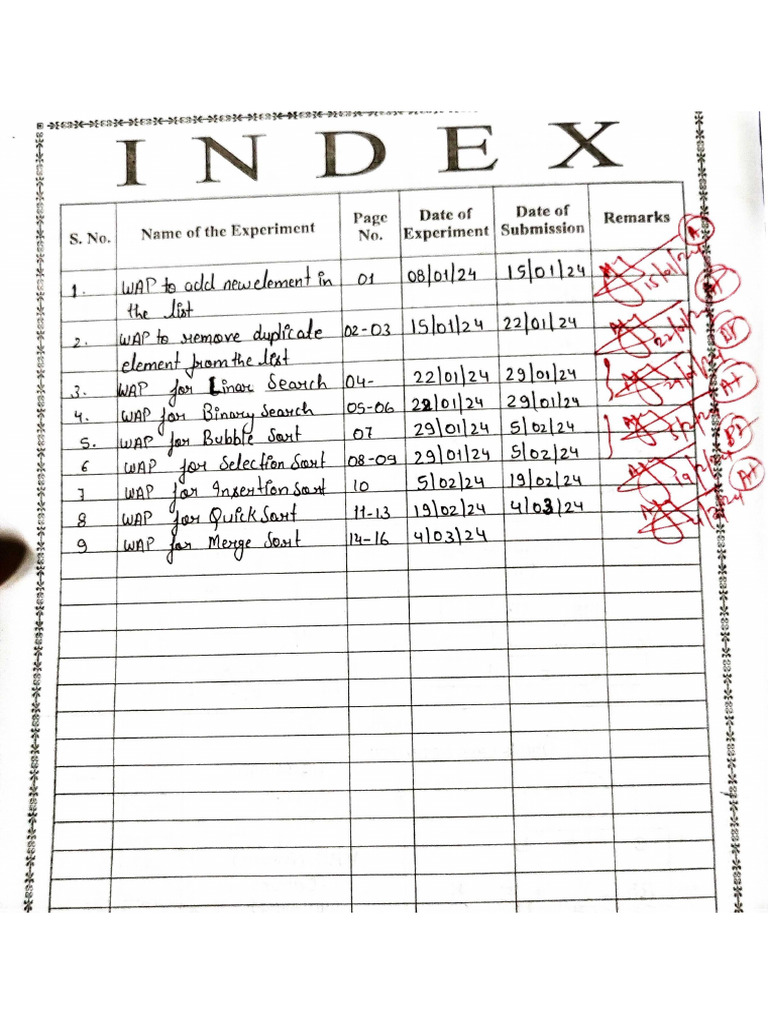 INDEX
S. No. Name of the Experiment Page No. Date of Experiment Date of Submission Remarks
1. WAP to add new element in the list 01 08/01/24 15/01/24 15/01/24 A
2. WAP to remove duplicate element from the list 02-03 15/01/24 22/01/24 22/01/24
3. WAP for Linar Search 04- 22/01/24 29/01/24
4. WAP for Binary Search 05-06 22/01/24 29/01/24 A+
5. WAP for Bubble Sort 07 29/01/24 5/02/24
6 WAP for Selection Sort 08-09 29/01/24 5/02/24
7 WAP for Insertion Sort 10 5/02/24 19/02/24
8 WAP for Quick Sort 11-13 19/02/24 4/03/24 A+
9 WAP for Merge Sort 14-16 4/03/24